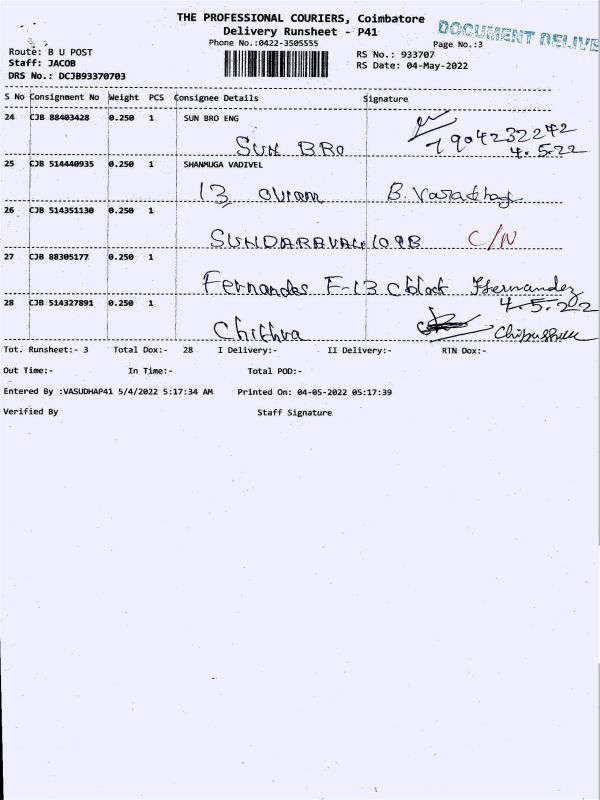 THE PROFESSIONAL COURIERS, Coimbatore
Delivery Runsheet - P41
DOCUMENT DELIVE
Phone No.:0422-3505555
Page No.:3
Route: B U POST
RS No.: 933707
Staff: JACOB
RS Date: 04-May-2022
DRS No.: DCJB93370703
S No Consignment No Weight PCS Consignee Details Signature
24 CJB 88403428 0.250 1 SUN BRO ENG
SUN BRO 7904232242
4.5.22
25 CJB 514440935 0.250 1 SHANMUGA VADIVEL
13
26 CJB 514351130 0.250 1
SUNDARAVALI 109B C/N
27 CJB 88305177 0.250 1
Fernandes F-13 C block Hernandez
4.5.22
28 CJB 514327891 0.250 1
Chithra
Tot. Runsheet:- 3 Total Dox:- 28 I Delivery:- II Delivery:- RTN Dox:-
Out Time:- In Time:- Total POD:-
Entered By :VASUDHAP41 5/4/2022 5:17:34 AM Printed On: 04-05-2022 05:17:39
Verified By Staff Signature